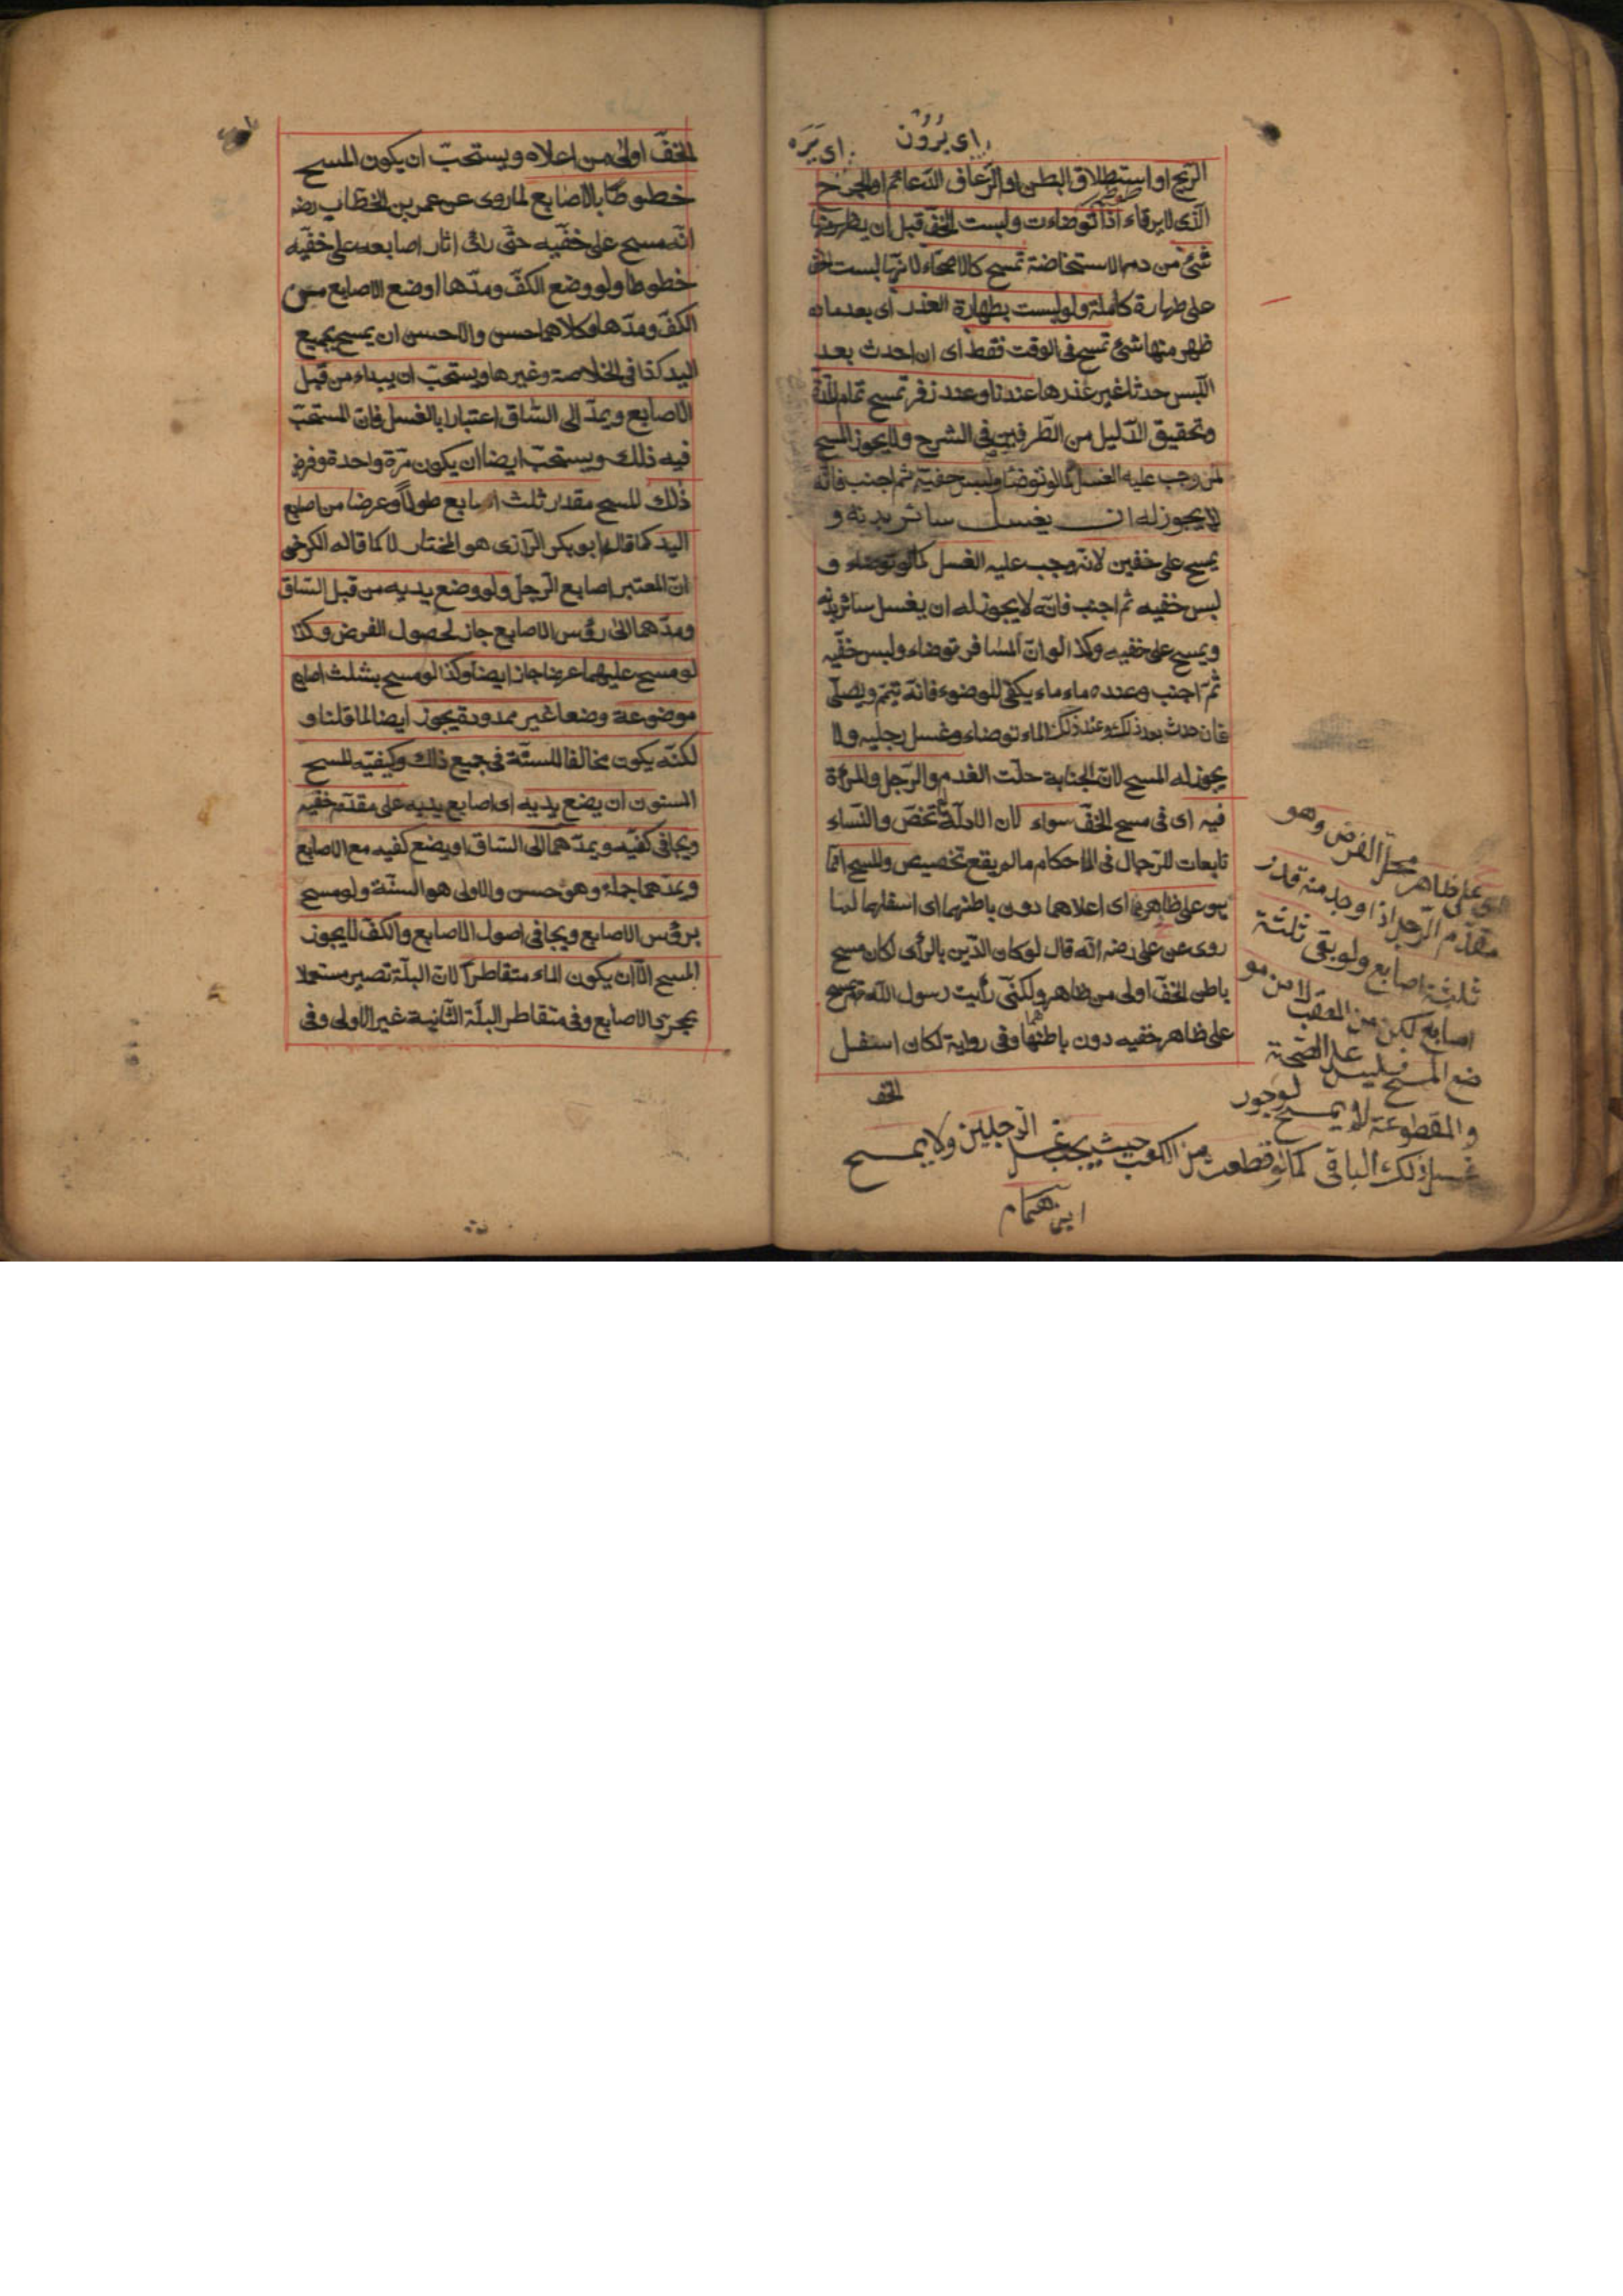 اى يرون اى يره
الريح او استطلاق البطن او الرعاف الدائم او الجرح
الذى لا يرقاء اذا توضاءت ولبست الخف قبل ان يظهر منها
شئ من دم الاستحاضة تمسح كالاصحاء لانها لبست الخف
على طهارة كاملة ولو لبست بطهارة العذر اى بعد ما
ظهر منها شئ تمسح فى الوقت فقط اى ان احدث بعد
اللبس حدثا غير عذرها عندنا وعند زفر تمسح تمام المدة
وتحقيق الدليل من الطرفين فى الشرح ولا يجوز المسح
لمن وجب عليه الغسل كما لو توضأ ولبس خفيه ثم اجنب فانه
لا يجوز له ان يغسل سائر بدنه و
يمسح على خفين لانه وجب عليه الغسل كما لو توضاء و
لبس خفيه ثم اجنب فانه لا يجوز له ان يغسل سائر بدنه
ويمسح على خفيه وكذا لو ان المسافر توضاء ولبس خفيه
ثم اجنب وعنده ماء ماء يكفى للوضوء فانه تيمم ويصلى
فان حدث بعد ذلك وعند ذلك الماء توضاء وغسل رجليه ولا
يجوز له المسح لان الجنابة حلت القدم والرجل والمرأة
فيه اى فى مسح الخف سواء لان الادلة تخص والنساء
تابعات للرجال فى الاحكام ما لم يقع تخصيص والمسح انما
هو على ظاهرهما اى اعلاهما دون باطنهما اى اسفلهما لما
روى عن على رضه انه قال لو كان الدين بالرأى لكان مسح
باطن الخف اولى من ظاهره ولكنى رأيت رسول الله مسح
على ظاهر خفيه دون باطنهما وفى رواية لكان اسفل
الخف
على ظاهر محل الفرض وهو
مقدم الرجل اذا وجد منه قدر
ثلثة اصابع ولو بقى ثلثة
اصابع لكن من العقب لا من مو
ضع المسح فليس على الصحة
والمقطوعة لا يمسح لوجود
غسل ذلك الباقى كما لو قطعت من الكعب حيث يجب غسل الرجلين ولا يمسح
ابن همام
الخف اولى من اعلاه ويستحب ان يكون المسح
خطوطا بالاصابع لما روى عن عمر بن الخطاب رضه
انه مسح على خفيه حتى رائى اثار اصابعه على خفيه
خطوطا ولو وضع الكف ومدها او وضع الاصابع مع
الكف ومدها وكلاهما حسن والاحسن ان يمسح بجميع
اليد كذا فى الخلاصة وغيرها ويستحب ان يبداء من قبل
الاصابع ويمد الى الساق اعتبارا بالغسل فان المستحب
فيه ذلك ويستحب ايضا ان يكون مرة واحدة وفرض
ذلك المسح مقدار ثلث اصابع طولا وعرضا من اصابع
اليد كما قاله ابو بكر الرازى هو المختار لا كما قاله الكرخى
ان المعتبر اصابع الرجل ولو وضع يديه من قبل الساق
ومدهما الى رؤس الاصابع جاز لحصول الفرض وكذا
لو مسح عليهما عرضا جاز ايضا وكذا لو مسح بثلث اصابع
موضوعة وضعا غير ممدودة يجوز ايضا لما قلنا و
لكنه يكون مخالفا للسنة فى جميع ذلك وكيفية المسح
المسنون ان يضع يديه اى اصابع يديه على مقدم خفيه
ويجافى كفيه ويمدهما الى الساق او يضع كفيه مع الاصابع
ويمدهما جملة وهو حسن والاولى هو السنة ولو مسح
برؤس الاصابع ويجافى اصول الاصابع والكف لا يجوز
المسح الا ان يكون الماء متقاطرا لان البلة تصير مستعملا
بجرى الاصابع وفى متقاطر البلة الثانية غير الاولى وفى